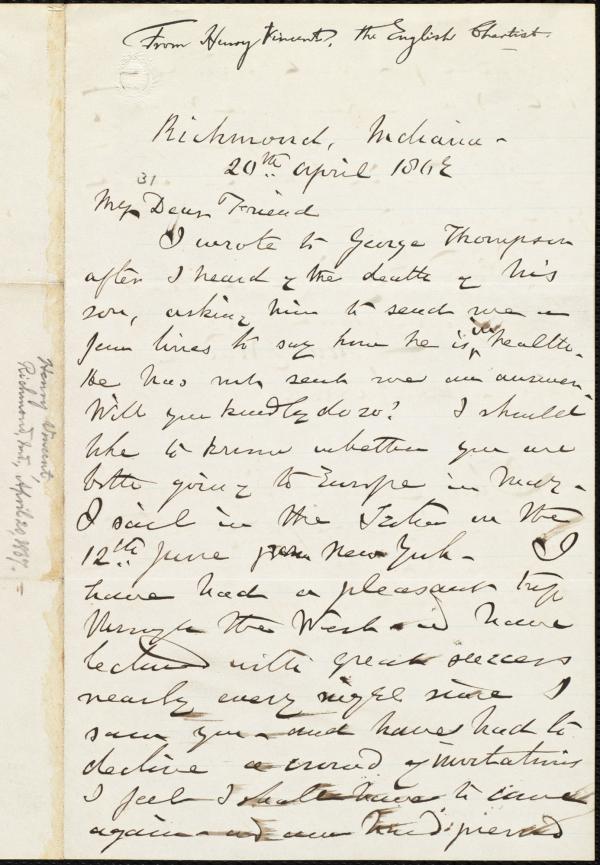 From Henry Vincent, the English Chartist.
Richmond, Indiana -
20th April 1867
31
My Dear Friend
I wrote to George Thompson
after I heard of the death of his
son, asking him to send me a
few lines to say how he is in health.
He has not sent me an answer.
Will you kindly do so? I should
like to know whether you are
both going to Europe in May -
I sail in the on the
12th June from New York - I
have had a pleasant trip
through the West and have
lectured with great success
nearly every night since I
saw you - and have had to
decline a crowd of invitations
I feel I shall have to come
again - and our kind friend
Henry Vincent,
Richmond, Ind., April 20, 1867.